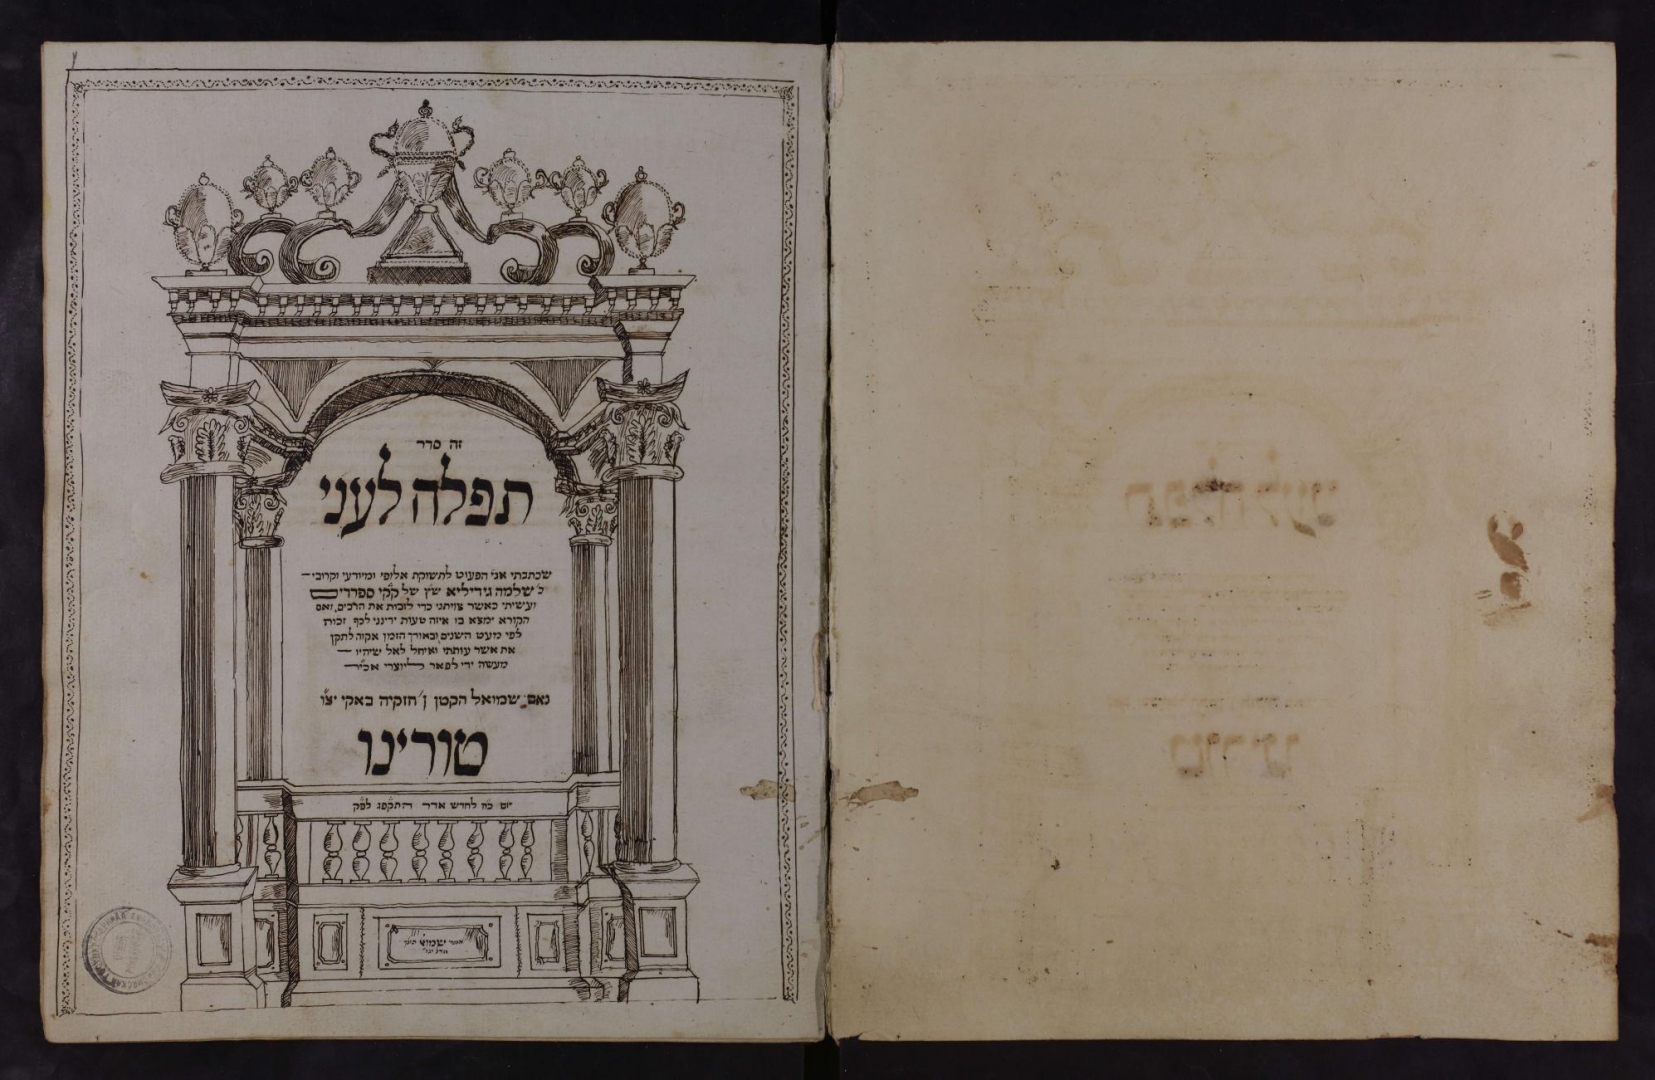 זה סדר
תפלה לעני
שכתבתי אני הפעוט לתשוקת אלופי ומיודעי וקרובי
כ' שלמה גידיליא ש״ץ של ק״ק ספרדים
ועשיתי כאשר צויתני כדי לזכות את הרבים, ואם
הקורא ימצא בו איזה טעות ידינני לכף זכות
לפי מעט השנים ובאורך הזמן אקוה לתקן
את אשר עותתי ואיחל לאל שיהיו
מעשה ידי לפאר ליוצרי אכי״ר
נאם שמואל הקטן ן' חזקיה באקי יצ״ו
טורינו
יום כח לחדש אדר התקפג לפ״ק
שמואל